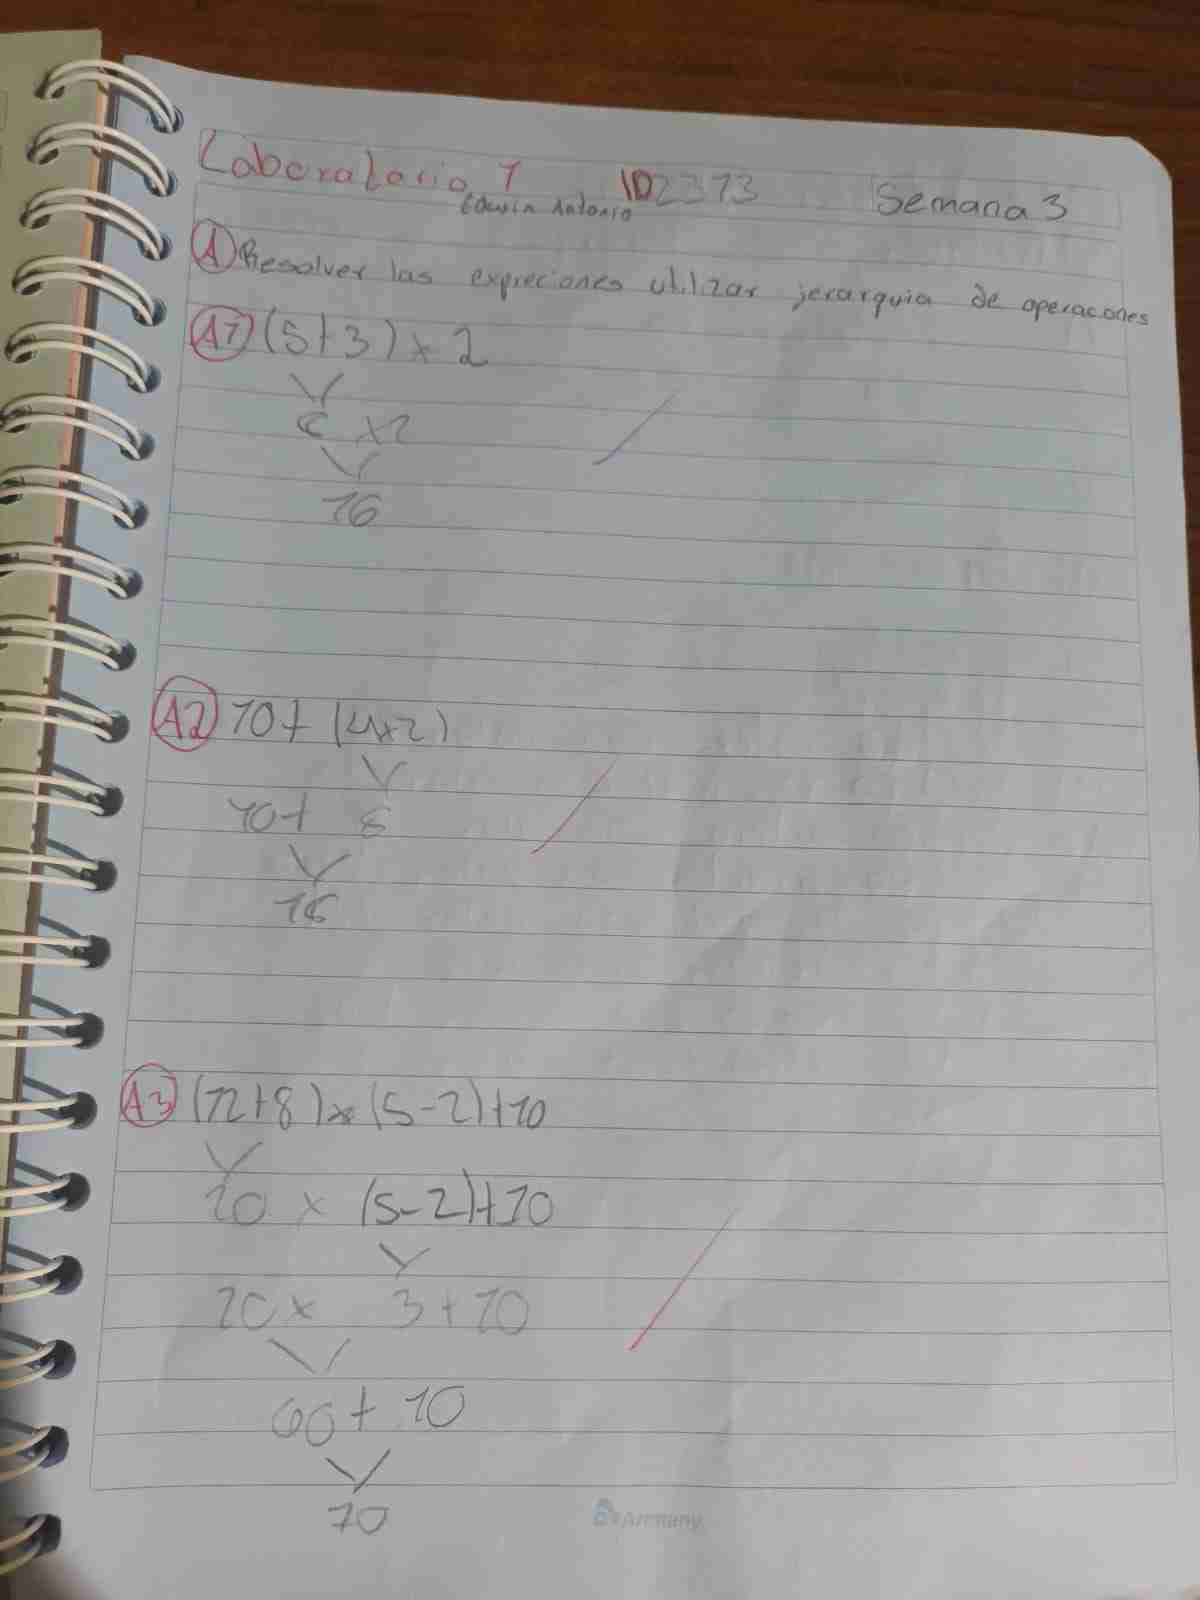 Laboratorio 1 ID2373 Semana 3
Edwin Antonio
A Resolver las expreciones utilizar jerarquia de operacones
A1 (5+3)×2
8 ×2
16
A2 10+(4×2)
10+ 8
18
A3 (12+8)×(5-2)+10
20 × (5-2)+10
20× 3+10
60+10
70
Armany